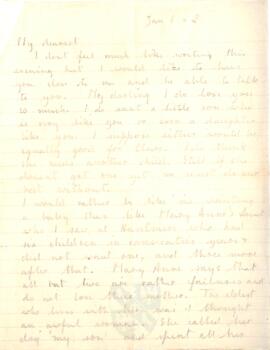 Jan 1
My dearest
I don't feel much like writing this
evening but I would like to have
you close to me and be able to talk
to you. My darling I do love you
so much. I do want a little son who
is very like you or even a daughter
like you. I suppose either would be
equally good for Clare. I do think
she needs another child. Still if she
doesn't get one yet we must do our
best without.
I would rather be like me wanting
a baby than like Mary Anne's
who I saw at who had
six children in consecutive years &
did not want one, and three more
after that. Mary Anne says that
all but two are rather failures and
do not love their mother. The eldest
who lives with her was I thought
an awful woman. She called her
dog "my son" and spent all her